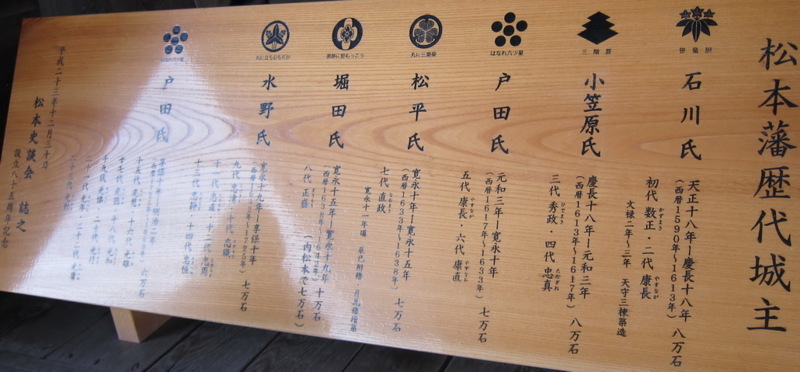 松本藩歴代城主
笹竜胆
石川氏
天正十八年ー慶長十八年
(西暦1590年〜1613年) 八万石
初代 数正・二代 康長
文禄二年〜三年 天守三棟築造
三階菱
小笠原氏
慶長十八年ー元和三年
(西暦1613年〜1617年) 八万石
三代 秀政・四代 忠真
はなれ六ツ星
戸田氏
元和三年ー寛永十年
(西暦1617年〜1633年) 七万石
五代 康長・六代 康直
丸に三葉葵
松平氏
寛永十年ー寛永十五年
(西暦1633年〜1638年) 七万石
七代 直政
寛永十一年頃 辰巳附櫓・月見櫓増築
堀田氏
寛永十五年ー寛永十九年 十万石
(西暦1638年〜1642年)
八代 正盛 (内松本で七万石)
水野氏
寛永十九年ー享保十年
七万石
九代 忠清・十代 忠職
十一代 忠直・十二代 忠周
十三代 忠幹・十四代 忠恒
はなれ六ツ星
戸田氏
六万石
平成二十三年十二月三十日
松本史談会 誌之
設立八十五周年記念